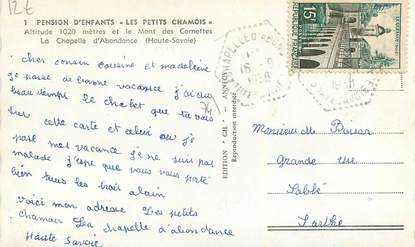 12€
1 PENSION D'ENFANTS « LES PETITS CHAMOIS »
Altitude 1020 mètres et le Mont des Cornettes
La Chapelle d'Abondance (Haute-Savoie)
cher cousin cousine et madeleine
je passe de bonne vacance j'ai du
beau temps le chalet que tu vois
sur cette carte et celui ou je
passe mes vacance je ne suis pas
malade j'espe que vous vous porté
bien tous les trois alain
voici mon adresse Les petits
chamois La chapelle d'abondance
Haute Savoie
74
EDITION " GIL "
Reproduction interdite
15F
1958
Monsieur
Grande rue
Sablé
Sarthe